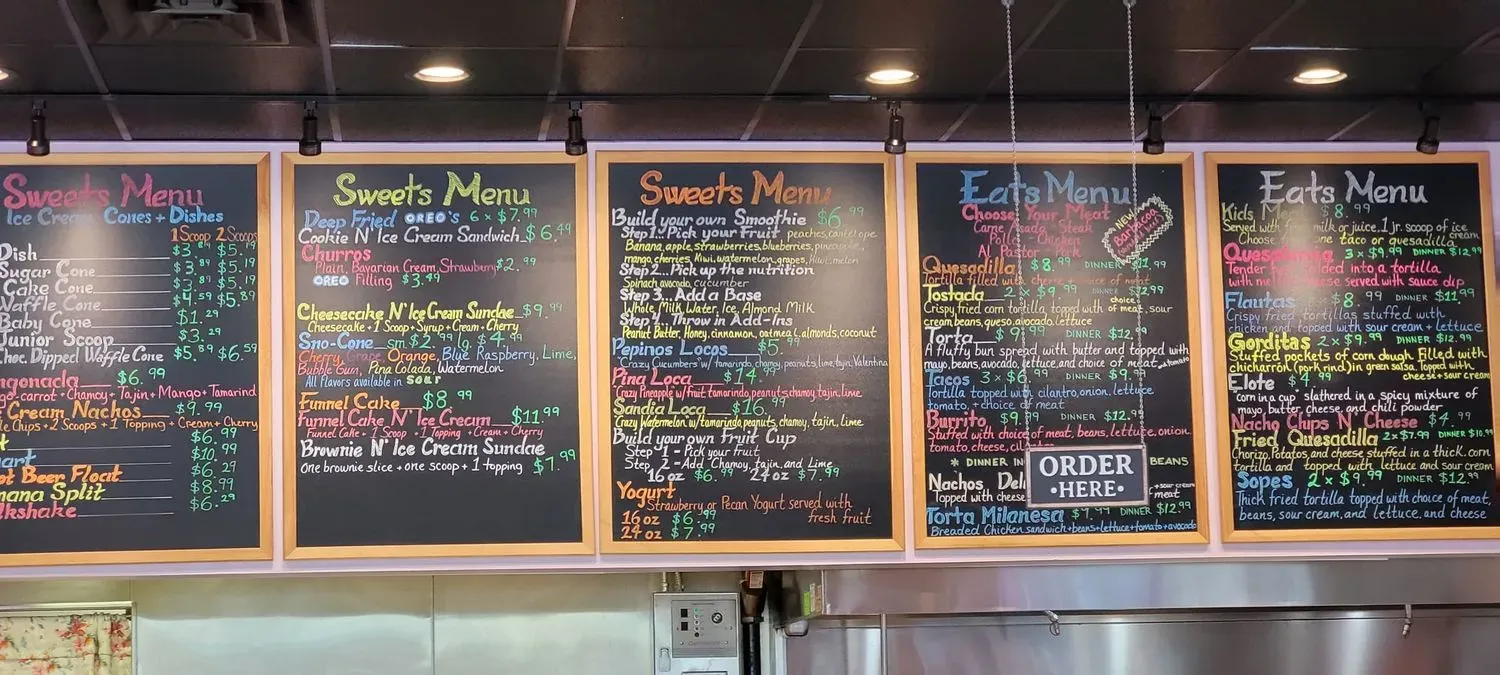 Sweets Menu
Ice Cream Cones + Dishes
1 Scoop 2 Scoops
Dish $3.89 $5.19
Sugar Cone $3.89 $5.19
Cake Cone $3.89 $5.19
Waffle Cone $4.59 $5.89
Baby Cone $1.29
Junior Scoop $3.29
Choc. Dipped Waffle Cone $5.89 $6.59
$6.99
carrot + Chamoy + Tajin + Mango + Tamarind
Cream Nachos $9.99
Chips + 2 Scoops + 1 Topping + Cream + Cherry
$6.99
$10.99
Beer Float $6.29
Split $8.99
$6.29
Sweets Menu
Deep Fried OREO's 6 x $7.99
Cookie N' Ice Cream Sandwich $6.49
Churros
Plain, Bavarian Cream, Strawbury $2.99
OREO Filling $3.49
Cheesecake N' Ice Cream Sundae $9.99
Cheesecake + 1 Scoop + Syrup + Cream + Cherry
Sno-Cone sm. $2.99 lg. $4.99
Cherry, Grape, Orange, Blue Raspberry, Lime,
Bubble Gum, Pina Colada, Watermelon
All Flavors available in sour
Funnel Cake $8.99
Funnel Cake N' Ice Cream $11.99
Funnel Cake + 1 Scoop + 1 Topping + Cream + Cherry
Brownie N' Ice Cream Sundae
One brownie slice + one scoop + 1 topping $7.99
Sweets Menu
Build your own Smoothie $6.99
Step 1...Pick your Fruit peaches, cantelope
Banana, apple, strawberries, blueberries, pineapple,
mango, cherries, Kiwi, watermelon, grapes, Kiwi, melon
Step 2...Pick up the nutrition
Spinach avocado, cucumber
Step 3...Add a Base
Whole Milk, Water, Ice, Almond Milk
Step 4...Throw in Add-Ins
Peanut Butter, Honey, cinnamon, oatmeal, almonds, coconut
Pepinos Locos $5.99
Crazy Cucumbers w/ tamarindo, chamoy, peanuts, lime, tajin, Valentina
Pina Loca $14.99
Crazy Pineapple w/ fruit tamarindo, peanuts, chamoy, tajin, lime
Sandia Loca $16.99
Crazy Watermelon w/ tamarindo, peanuts, chamoy, tajin, lime
Build your own Fruit Cup
Step 1 - Pick your fruit
Step 2 - Add Chamoy, tajin, and Lime
16 oz $6.99 24 oz $7.99
Yogurt
Strawberry or Pecan Yogurt served with
fresh fruit
16 oz $6.99
24 oz $7.99
Eats Menu
Choose Your Meat
Carne Asada - Steak
Pollo - Chicken
Al Pastor - Pork
NEW BARBACOA
Quesadilla $8.99 DINNER $11.99
Tortilla filled with cheese + choice of meat
Tostada 2 x $9.99 DINNER $12.99
Crispy fried corn tortilla, topped with choice of meat, sour
cream, beans, queso, avocado, lettuce
Torta $9.99 DINNER $12.99
A fluffy bun spread with butter and topped with
mayo, beans, avocado, lettuce, choice of meat, + tomato
Tacos 3 x $6.99 DINNER $9.99
Tortilla topped with cilantro, onion, lettuce
tomato, + choice of meat
Burrito $9.99 DINNER $12.99
Stuffed with choice of meat, beans, lettuce, onion,
tomato, cheese,
* DINNER BEANS
ORDER
• HERE •
Nachos
Topped with cheese + sour cream
+ meat
Torta Milanesa $9.99 DINNER $12.99
Breaded Chicken sandwich + beans + lettuce + tomato + avocado
Eats Menu
Kids $8.99
Served with milk or juice, 1 jr. scoop of ice cream
Choose one taco or quesadilla
3 x $9.99 DINNER $12.99
Tender folded into a tortilla
with cheese served with sauce dip
Flautas $8.99 DINNER $11.99
Crispy fried tortillas stuffed with
chicken and topped with sour cream + lettuce
Gorditas 2 x $9.99 DINNER $12.99
Stuffed pockets of corn dough. Filled with
chicharron (pork rind) in green salsa. Topped with
cheese + sour cream
Elote $4.99
"corn in a cup" slathered in a spicy mixture of
mayo, butter, cheese, and chili powder
Nacho Chips N' Cheese $4.99
Fried Quesadilla 2 x $7.99 DINNER $10.99
Chorizo, Potatos, and cheese stuffed in a thick, corn
tortilla and topped with lettuce and sour cream
Sopes 2 x $9.99 DINNER $12.99
Thick fried tortilla topped with choice of meat,
beans, sour cream, and lettuce, and cheese